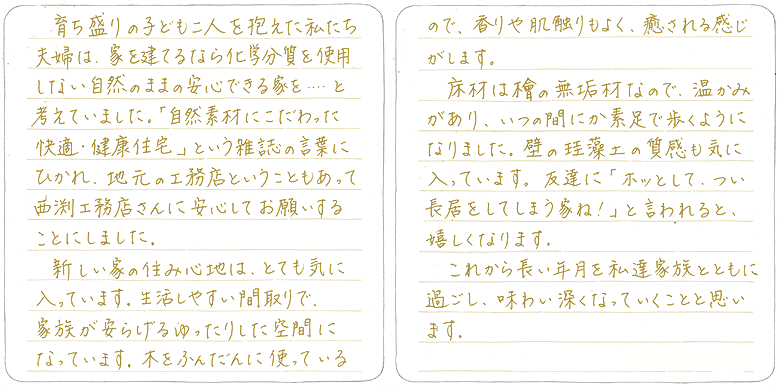 育ち盛りの子ども二人を抱えた私たち
夫婦は、家を建てるなら化学分質を使用
しない自然のままの安心できる家を‥‥と
考えていました。「自然素材にこだわった
快適・健康住宅」という雑誌の言葉に
ひかれ、地元の工務店ということもあって
西渕工務店さんに安心してお願いする
ことにしました。
新しい家の住み心地は、とても気に
入っています。生活しやすい間取りで、
家族が安らげるゆったりした空間に
なっています。木をふんだんに使っている
ので、香りや肌触りもよく、癒される感じ
がします。
床材は檜の無垢材なので、温かみ
があり、いつの間にか素足で歩くように
なりました。壁の珪藻土の質感も気に
入っています。友達に「ホッとして、つい
長居をしてしまう家ね！」と言われると、
嬉しくなります。
これから長い年月を私達家族とともに
過ごし、味わい深くなっていくことと思い
ます。